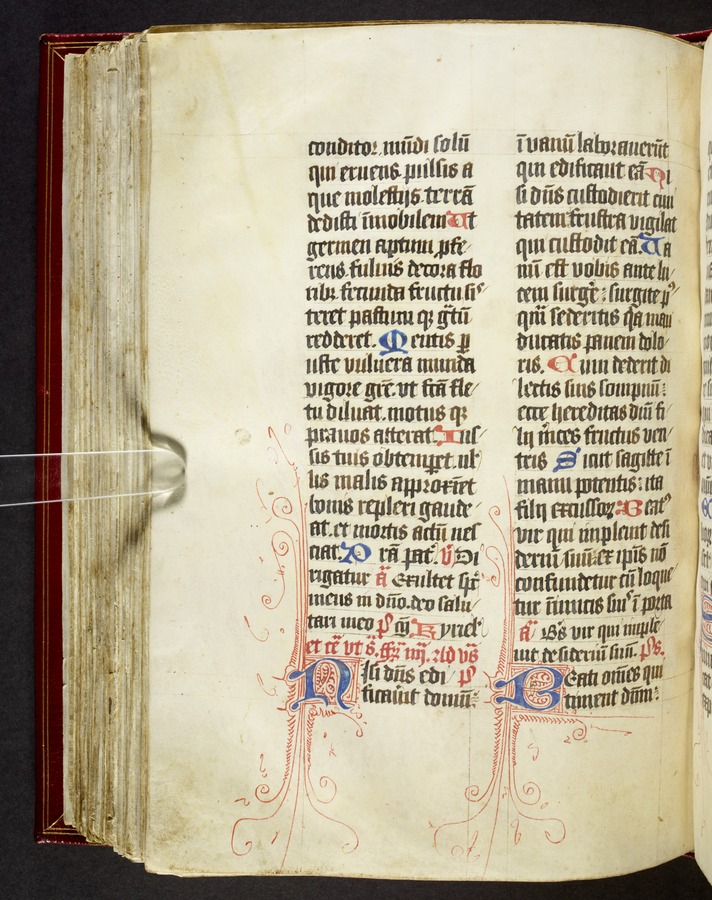 conditor. mūdi solū
qui eruens. pulsis a
que molestijs. terrā
dedisti īmobilem Ut
germen aptum ꝓfe/
rens. fuluis decora flo
ribꝫ. fecunda fructu sis/
teret pastum qꝫ gͣtū
redderet. Mentis ꝑ
uste vulnera munda
vigore grē. vt fcā fle/
tu diluat. motus qꝫ
prauos atterat. Ius/
sis tuis obtemꝑet. ul/
lis malis approxīet
bonis repleri gaude/
at. et mortis actū nes
ciat. D rā pat̄. v̄ Di
rigatur ā Exultet spc̄
meus in dn̄o. deo salu/
tari meo p̄s cū Kyriel/
et cē vt s̄. ffꝝ iiij. ad vs̄
NIsi dn̄s edi/ p̄s
ficauīt domū:
ī vanū laborauerūt
qui edificant eā Ni
si dn̄s custodierit ciui
tatem: frustra vigilat
qui custodit eā. Ua
nū est vobis ante lu/
cem surge : surgite p9
qm̄ sederitis q̄ man/
ducatis panem dolo/
ris. Cum dederit di
lectis suis sompnū:
ecce hereditas dn̄i fi/
lij m̄ces fructus ven/
tris Sicut sagitte ī
manu potentis: ita
filij excussoꝝ Beat9
vir qui impleuit desi
deriū suū. ex ipīs nō
confundetur cū loque/
tur īimicis suis ī porta
ā Bs̄ vir qui imple/
uit desideriū suū. Ps̄.
BEati om̄es qui
timent dm̄: